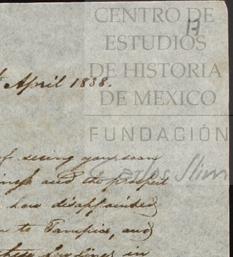 CENTRO DE
ESTUDIOS
DE HISTORIA
DE MEXICO
FUNDACIÓN
Carlos Slim
13
April 1838.
of seeing you soon
and the prospect
have disappointed
to Tampico, and
these few lines in